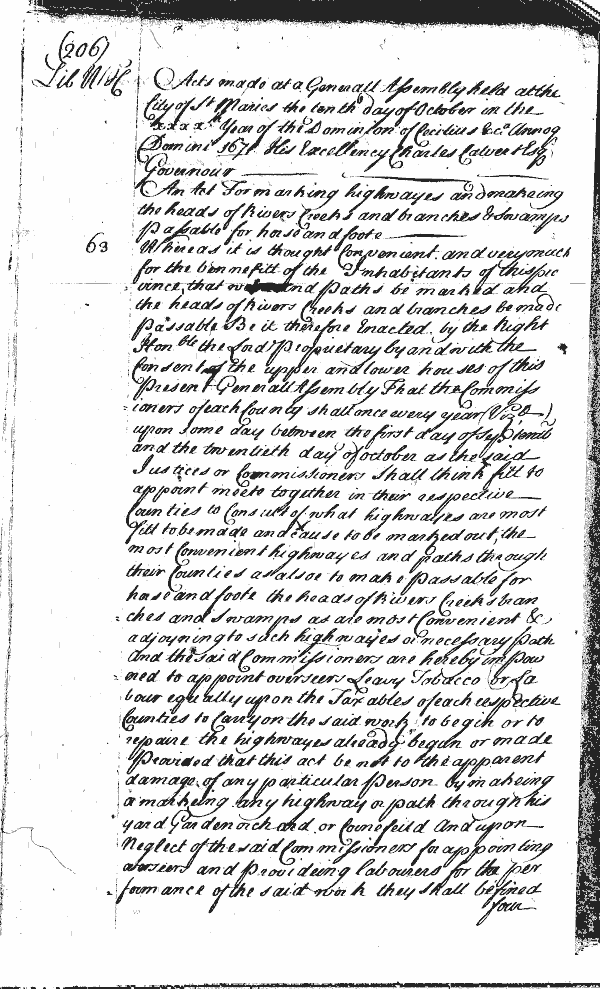 (206)
Lib WH
Acts made at a Generall Assembly held at the
City of St Maries the tenth day of October in the
xxxx Year of the Dominion of Cecilius &ca Annoq
Domini 1671 His Excellency Charles Calvert Esqr
Governour
An Act For marking highwayes and makeing
the heads of Rivers Creeks and branches & Swamps
passable for horse and foote
63
Whereas it is thought Convenient and very much
for the bennefitt of the Inhabitants of this pro
vince that and paths be marked and
the heads of Rivers Creeks and branches be made
passable Be it therefore Enacted by the Right
Honble the Lord Proprietary by and with the
Consent of the upper and lower houses of this
Present Generall Assembly That the Commiss
ioners of each County shall once every year (Vizt)
upon some day between the first day of September
and the twentieth day of october as the said
Justices or Commissioners shall think fitt to
appoint meete together in their respective
Counties to Consult of what highwayes are most
fitt to be made and cause to be marked out, the
most Convenient highwayes and paths through
their Counties as alsoe to make passable for
horse and foote the heads of Rivers Creeks bran
ches and Swamps as are most Convenient &
adjoyning to such highwayes or necessary path
And the said Commissioners are hereby impow
red to appoint overseers Leavy Tobacco or La
bour equally upon the Taxables of each respective
Counties to Carry on the said work, to begin or to
repaire the highwayes already began or made
Provided that this act be not to the apparent
damage of any particular Person by makeing
a markeing any highway or path through his
yard Garden orchard or Cornefeild And upon
Neglect of the said Commissioners for appointing
overseers and Provideing labourers for the per
formance of the said work they shall be fined
four